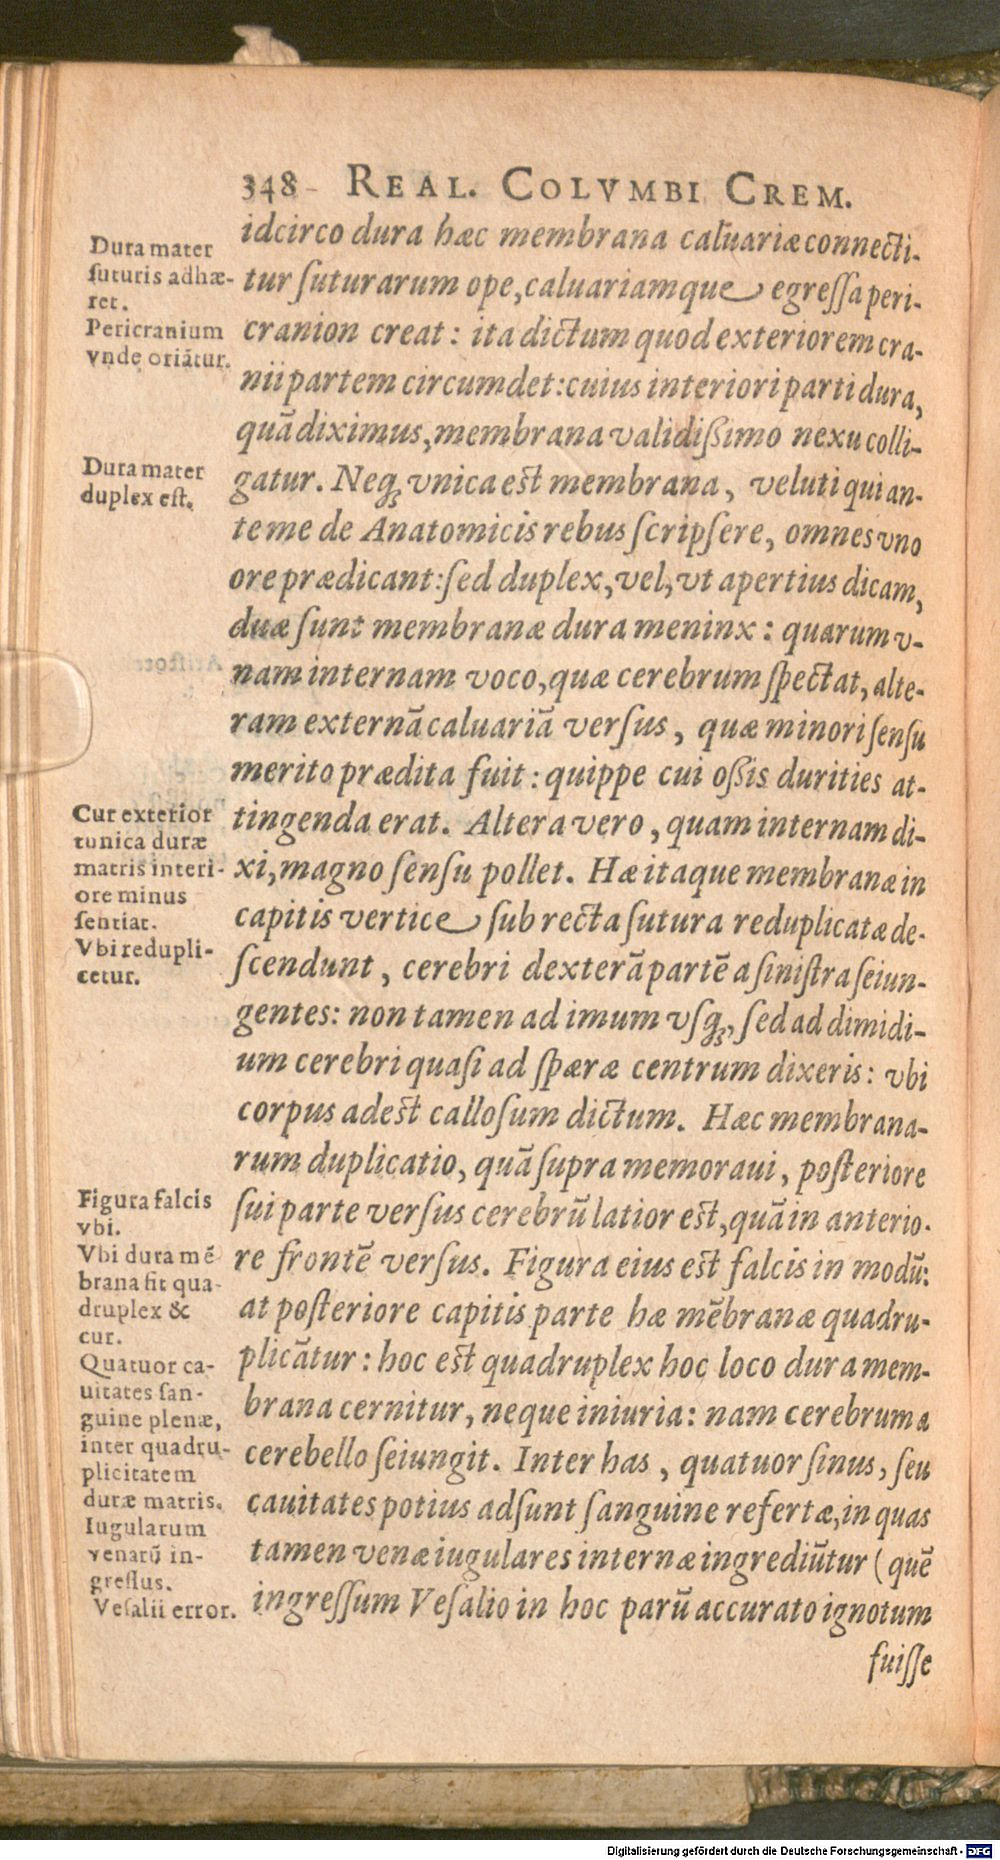 348 REAL. COLVMBI CREM.
idcirco dura hæc membrana caluariæ connecti-
tur ſuturarum ope, caluariamque egreſſa peri-
cranion creat: ita dictum quod exteriorem cra-
nii partem circumdet: cuius interiori parti dura,
quā diximus, membrana validißimo nexu colli-
gatur. Neq; vnica est membrana, veluti qui an-
te me de Anatomicis rebus ſcripſere, omnes vno
ore prædicant: ſed duplex, vel, vt apertius dicam,
duæ ſunt membranæ dura meninx: quarum v-
nam internam voco, quæ cerebrum ſpectat, alte-
ram externā caluariā verſus, quæ minori ſenſu
merito prædita fuit: quippe cui oßis durities at-
tingenda erat. Altera vero, quam internam di-
xi, magno ſenſu pollet. Hæ itaque membranæ in
capitis vertice ſub recta ſutura reduplicatæ de-
ſcendunt, cerebri dexterā partē a ſiniſtra ſeiun-
gentes: non tamen ad imum vſq;, ſed ad dimidi-
um cerebri quaſi ad ſpæræ centrum dixeris: vbi
corpus adest calloſum dictum. Hæc membrana-
rum duplicatio, quā ſupra memoraui, poſteriore
ſui parte verſus cerebrū latior est, quā in anterio-
re frontē verſus. Figura eius est falcis in modū:
at poſteriore capitis parte hæ mēbranæ quadru-
plicātur: hoc est quadruplex hoc loco dura mem-
brana cernitur, neque iniuria: nam cerebrum a
cerebello ſeiungit. Inter has, quatuor ſinus, ſeu
cauitates potius adſunt ſanguine refertæ, in quas
tamen venæ iugulares internæ ingrediūtur (quē
ingreſſum Veſalio in hoc parū accurato ignotum
fuiſſe
Dura mater
ſuturis adhæ-
ret.
Pericranium
vnde oriātur.
Dura mater
duplex eſt.
Cur exterior
tunica duræ
matris interi-
ore minus
ſentiat.
Vbi redupli-
cetur.
Figura falcis
vbi.
Vbi dura mē
brana fit qua-
druplex &
cur.
Quatuor ca-
uitates ſan-
guine plenæ,
inter quadru-
plicitatem
duræ matris.
Iugularum
venarū in-
greſſus.
Veſalii error.
Digitalisierung gefördert durch die Deutsche Forschungsgemeinschaft - DFG